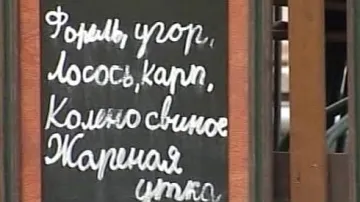 Форель, угор,
Лосось, карп,
Колено свиное
Жареная
утка